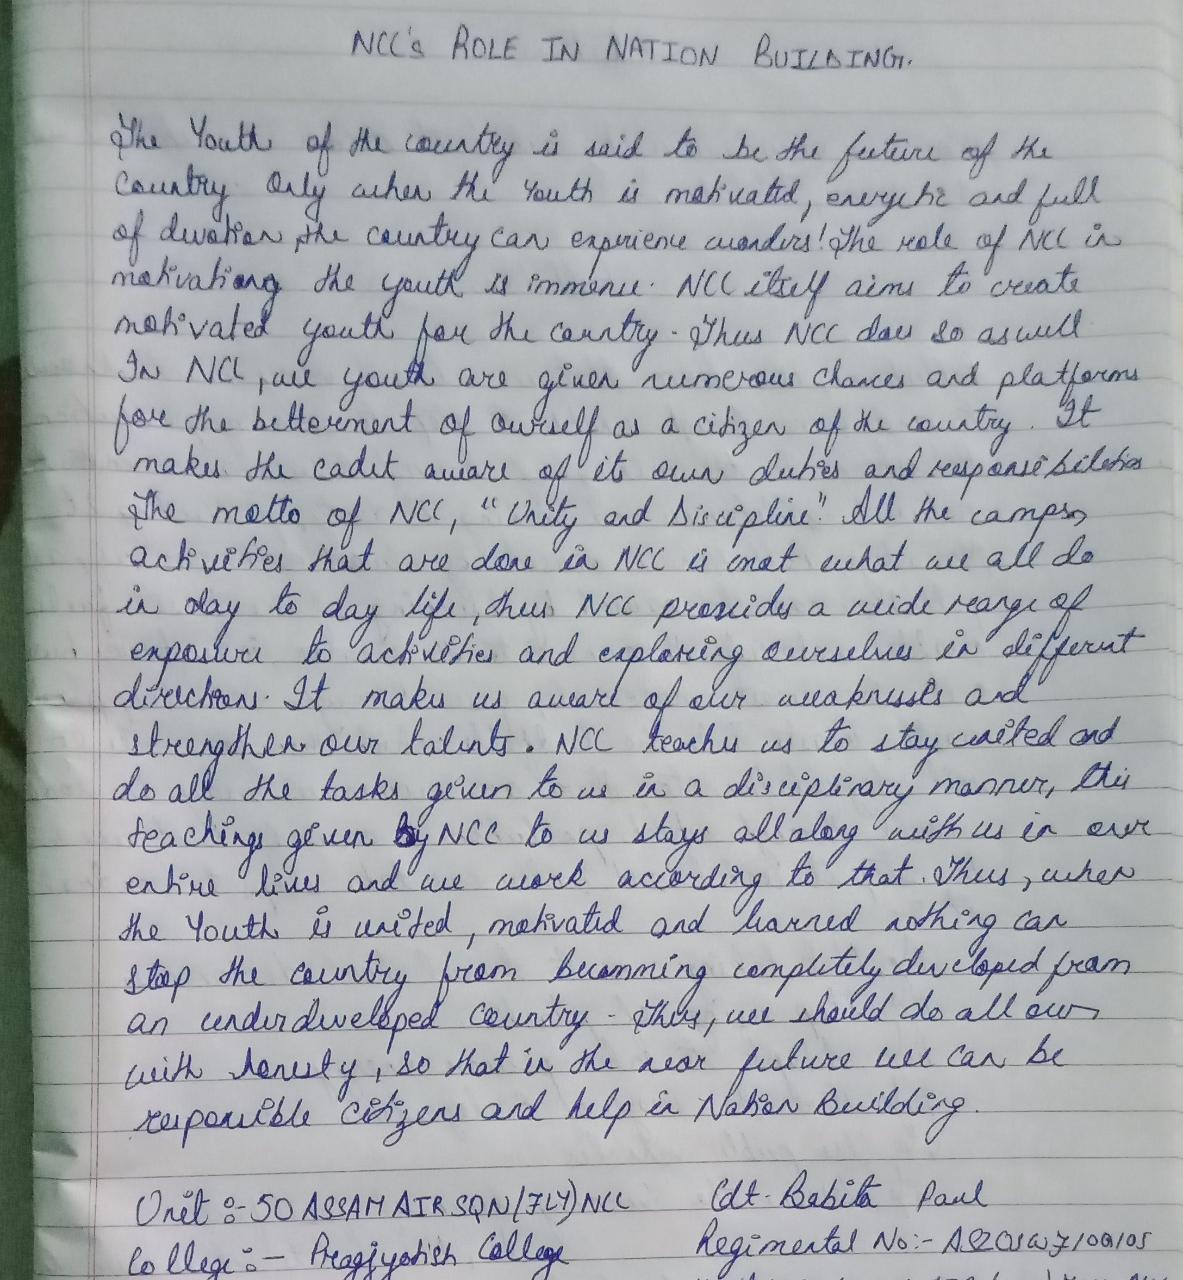 NCC's ROLE IN NATION BUILDING.
The Youth of the country is said to be the future of the
Country. Only when the Youth is motivated, energetic and full
of devotion, the country can experience wonders! The role of NCC in
motivationg the youth is immense. NCC itself aims to create
motivated youth for the country. Thus NCC does so aswell
In NCC, we youth are given numerous chances and platforms
for the betterment of ourself as a citizen of the country. It
makes the cadet aware of its own duties and responsibilities
The motto of NCC, "Unity and Discipline." All the camps,
activities that are done in NCC is not what we all do
in day to day life, thus NCC provides a wide range of
exposure to activities and exploring ourselves in different
directions. It makes us aware of our weaknesses and
strengthen our talents. NCC teaches us to stay united and
do all the tasks given to us in a disciplinary manner, this
teachings given by NCC to us stays all along with us in our
entire lives and we work according to that. Thus, when
the Youth is united, motivated and learned nothing can
stop the country from becomming completely developed from
an underdeveloped country. Thus, we should do all our
with honesty, so that in the near future we can be
responsible citizens and help in Nation Building.
Unit :- 50 ASSAM AIR SQN (FLY) NCC Cdt. Babita Paul
College :- Pragjyotish College Regimental No:-